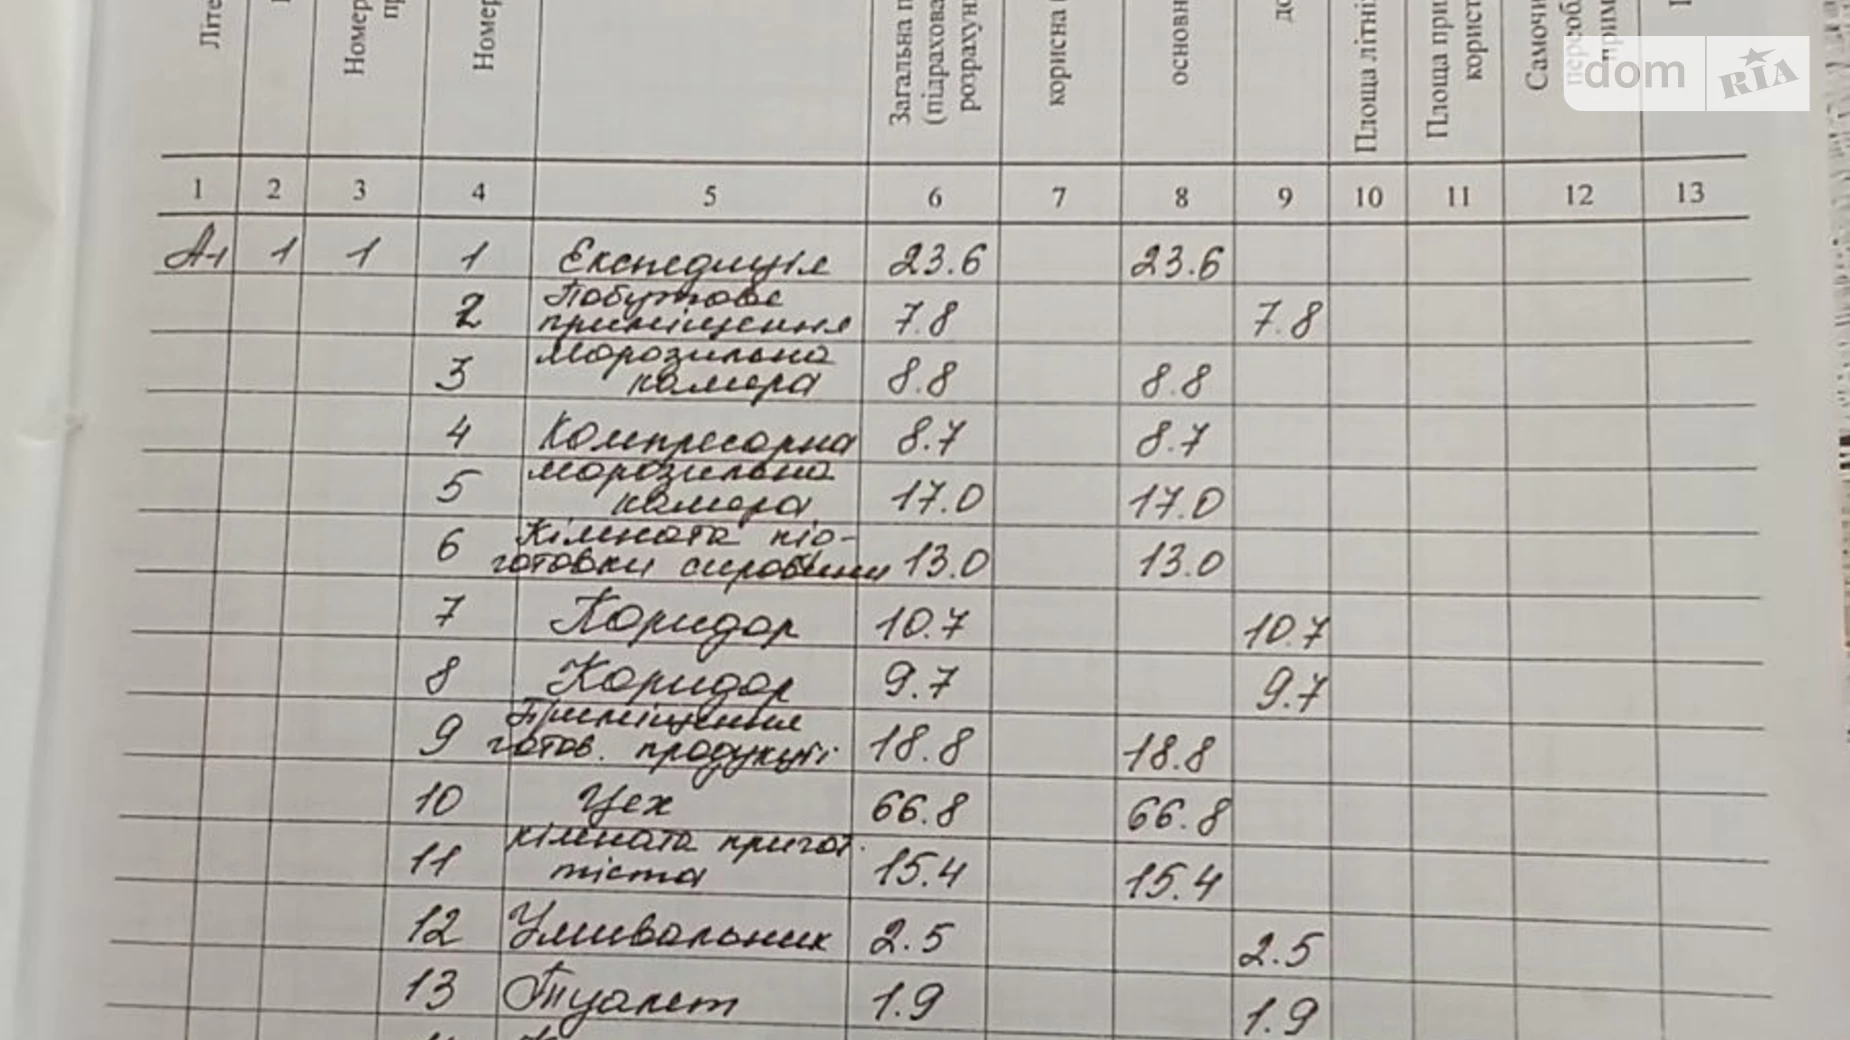 Літе
Номер
пр
Номер
Загальна п
(підрахова
розрахун
корисна
основн
до
Площа літні
Площа при
корист
Самочи
переоб
прим
dom RIA
1 2 3 4 5 6 7 8 9 10 11 12 13
А-1 1 1 1 Експедиція 23.6 23.6
Побутове
2 приміщення 7.8 7.8
Морозильна
3 камера 8.8 8.8
4 Компресорна 8.7 8.7
Морозильна
5 камера 17.0 17.0
Кімната під-
6 готовки сировини 13.0 13.0
7 Коридор 10.7 10.7
8 Коридор 9.7 9.7
Приміщення
9 готов. продукції 18.8 18.8
10 Цех 66.8 66.8
кімната пригот.
11 тіста 15.4 15.4
12 Умивальник 2.5 2.5
13 Туалет 1.9 1.9